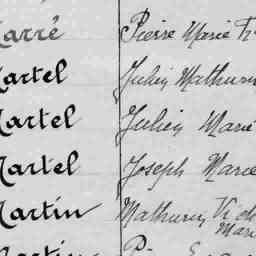 Carré Pierre Marie Fr
Martel Julien Mathurin
Martel Julien Marie
Martel Joseph Marie
Martin Mathurin Vict
Marie
Martin